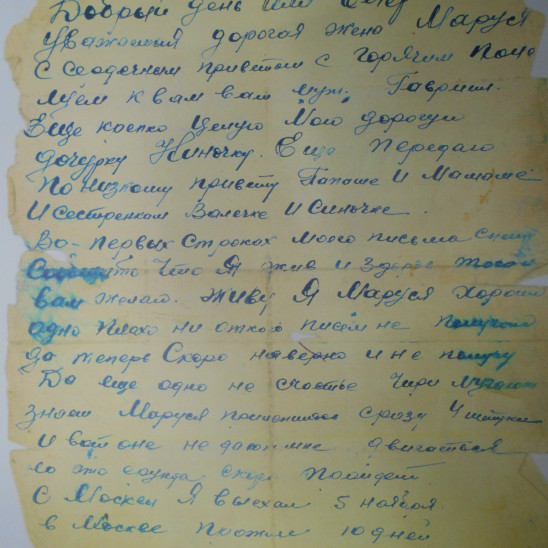 Добрый день или вечер
Уважаемая дорогая жена Маруся
С сердечным приветом с горячим поце
луем к вам ваш муж. Гавриил.
Еще крепко целую Мою дорогую
дочурку Ниночку. Еще передаю
По низкому привету Папаше И Мамаше
И сестренкам Валечке И Симочке.
Во-первых строках моего письма спешу
Сообщить Что Я жив и здоров того
вам желаю. Живу Я Маруся хорошо
одно плохо ни откого писем не получаю
да теперь Скоро наверно и не получу
Да еще одно не счастье Чири мучают
знаеш Маруся сразу 4 штуки
И вот оне не дают мне двигаться
но это ерунда скоро пройдет
С Москвы Я выехал 5 ноября
в Москве прожил 10 дней